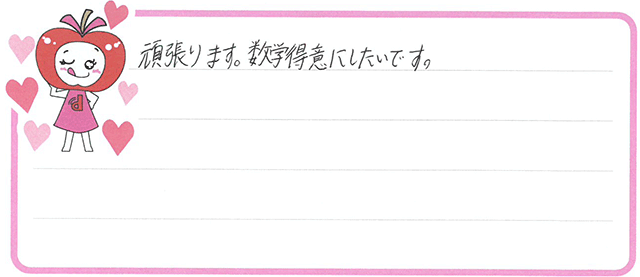 頑張ります。数学得意にしたいです。